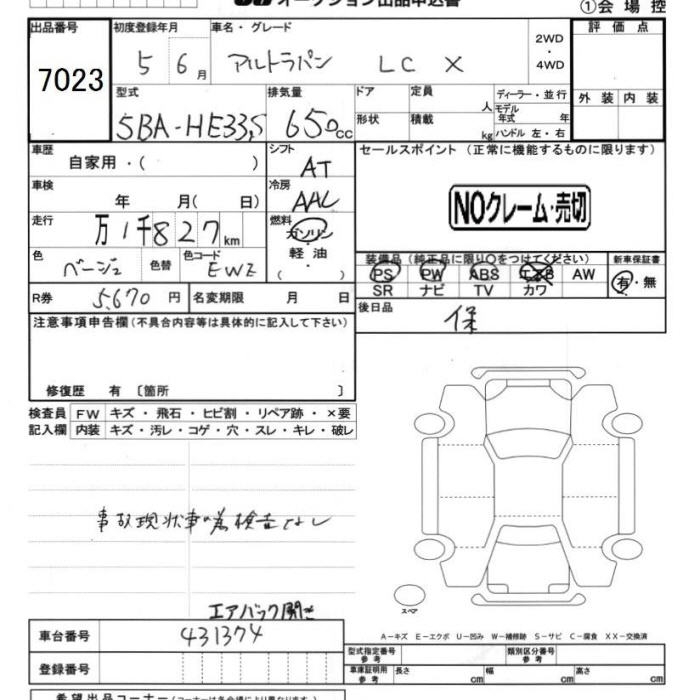 オークション出品申込書
①会場控
出品番号 7023
初度登録年月 5 6月
車名・グレード アルトラパン LC X
2WD・4WD
評価点
外装 内装
型式 5BA-HE33S
排気量 650cc
ドア 形状
定員 人
積載 kg
ディーラー・並行
モデル年式 年
ハンドル 左・右
車歴 自家用・( )
シフト AT
セールスポイント (正常に機能するものに限ります)
車検 年 月( 日)
冷房 AAC
NOクレーム・売切
走行 万1千827km
燃料 ガソリン 軽油 ( ・ )
色 ベージュ 色替 色コード EWZ
装備品(純正品に限り○をつけてください)
新車保証書
PS PW ABS エアB AW
有・無
SR ナビ TV カワ
R券 5,670円 名変期限 月 日
後日品 保
注意事項申告欄(不具合内容等は具体的に記入して下さい)
修復歴 有 〔箇所 〕
検査員 FW キズ・飛石・ヒビ割・リペア跡・×要
記入欄 内装 キズ・汚レ・コゲ・穴・スレ・キレ・破レ
事故現状車の為検査なし
エアバック開き
スペア
A−キズ E−エクボ U−凹み W−補修跡 S−サビ C−腐食 XX−交換済
車台番号 431374
型式指定番号 参考
類別区分番号 参考
登録番号
車庫証明用 参考 長さ cm 幅 cm 高さ cm
希望出品コーナー(コーナーは各会場により異なります)